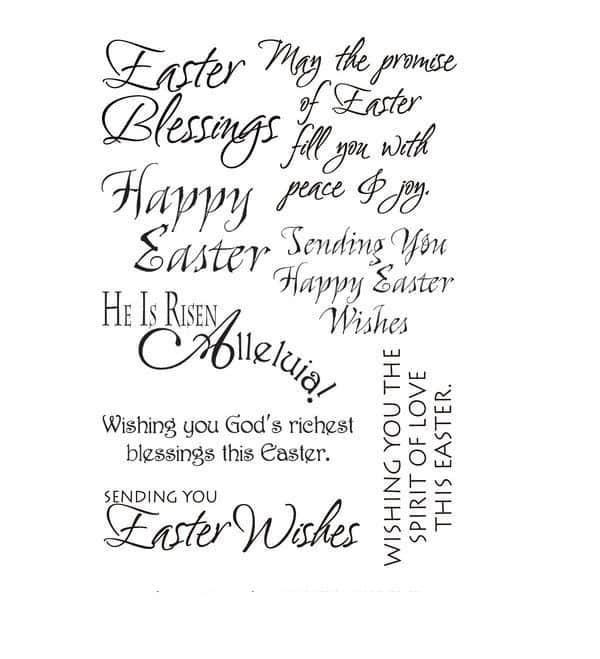 Easter
Blessings
May the promise
of Easter
fill you with
peace & joy.
Happy
Easter
Sending You
Happy Easter
Wishes
HE IS RISEN
Alleluia!
WISHING YOU THE
SPIRIT OF LOVE
THIS EASTER.
Wishing you God's richest
blessings this Easter.
SENDING YOU
Easter Wishes